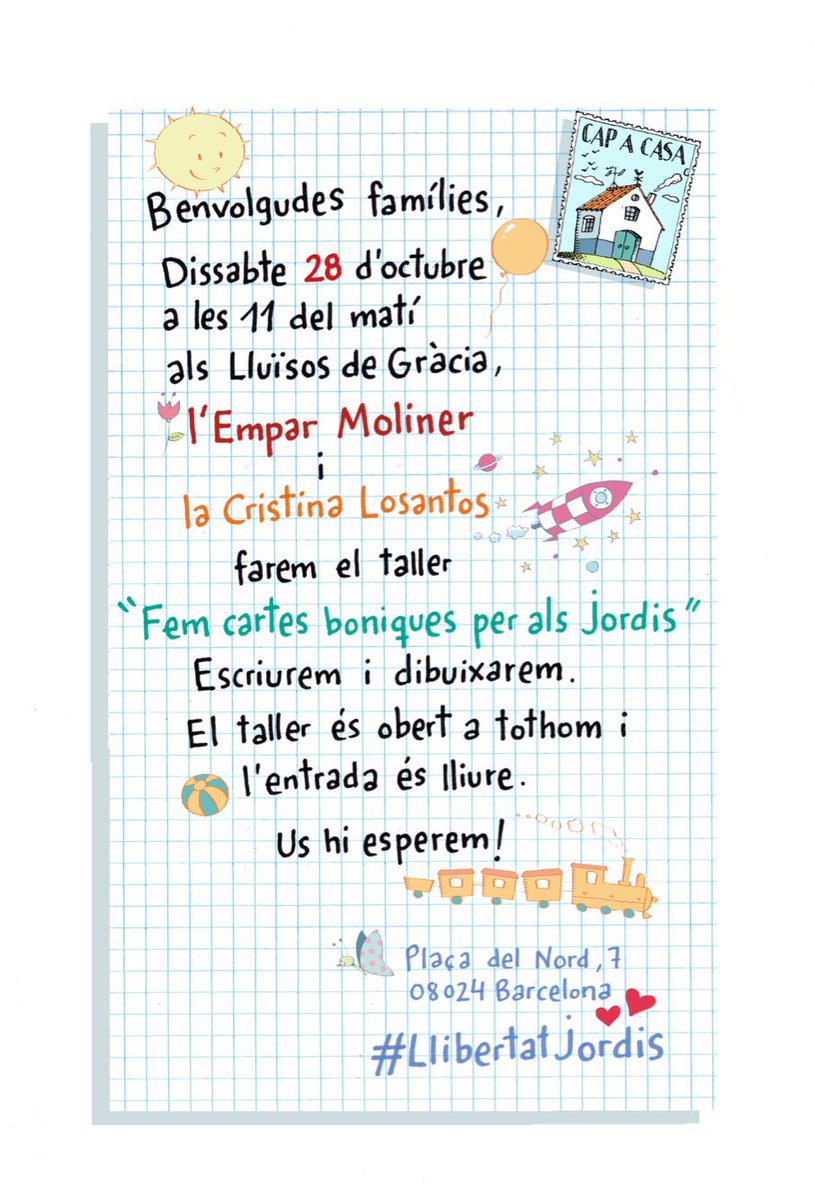 CAP A CASA
Benvolgudes famílies,
Dissabte 28 d'octubre
a les 11 del matí
als Lluïsos de Gràcia,
l'Empar Moliner
i
la Cristina Losantos
farem el taller
"Fem cartes boniques per als jordis"
Escriurem i dibuixarem.
El taller és obert a tothom i
l'entrada és lliure.
Us hi esperem!
Plaça del Nord, 7
08024 Barcelona
#Llibertatjordis